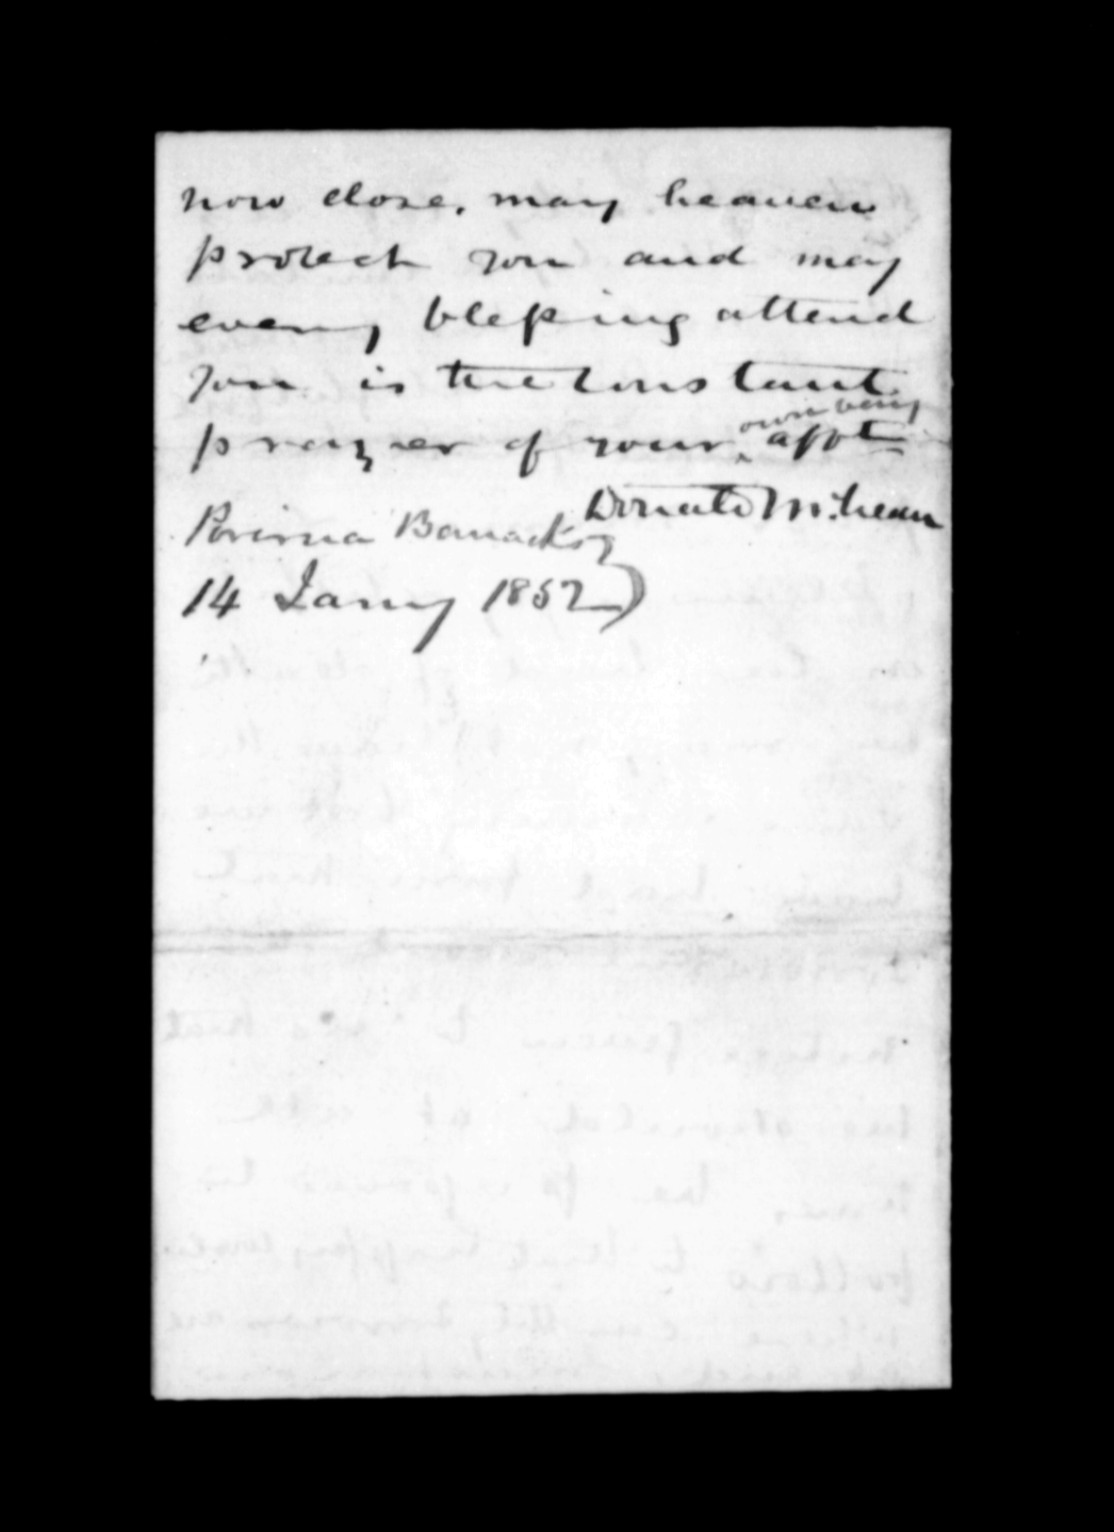 now close, may heaven
protect you and may
every blessing attend
you is the constant
prayer of your own very afft
Donald McLean
Porirua Barracks
14 Jany 1852